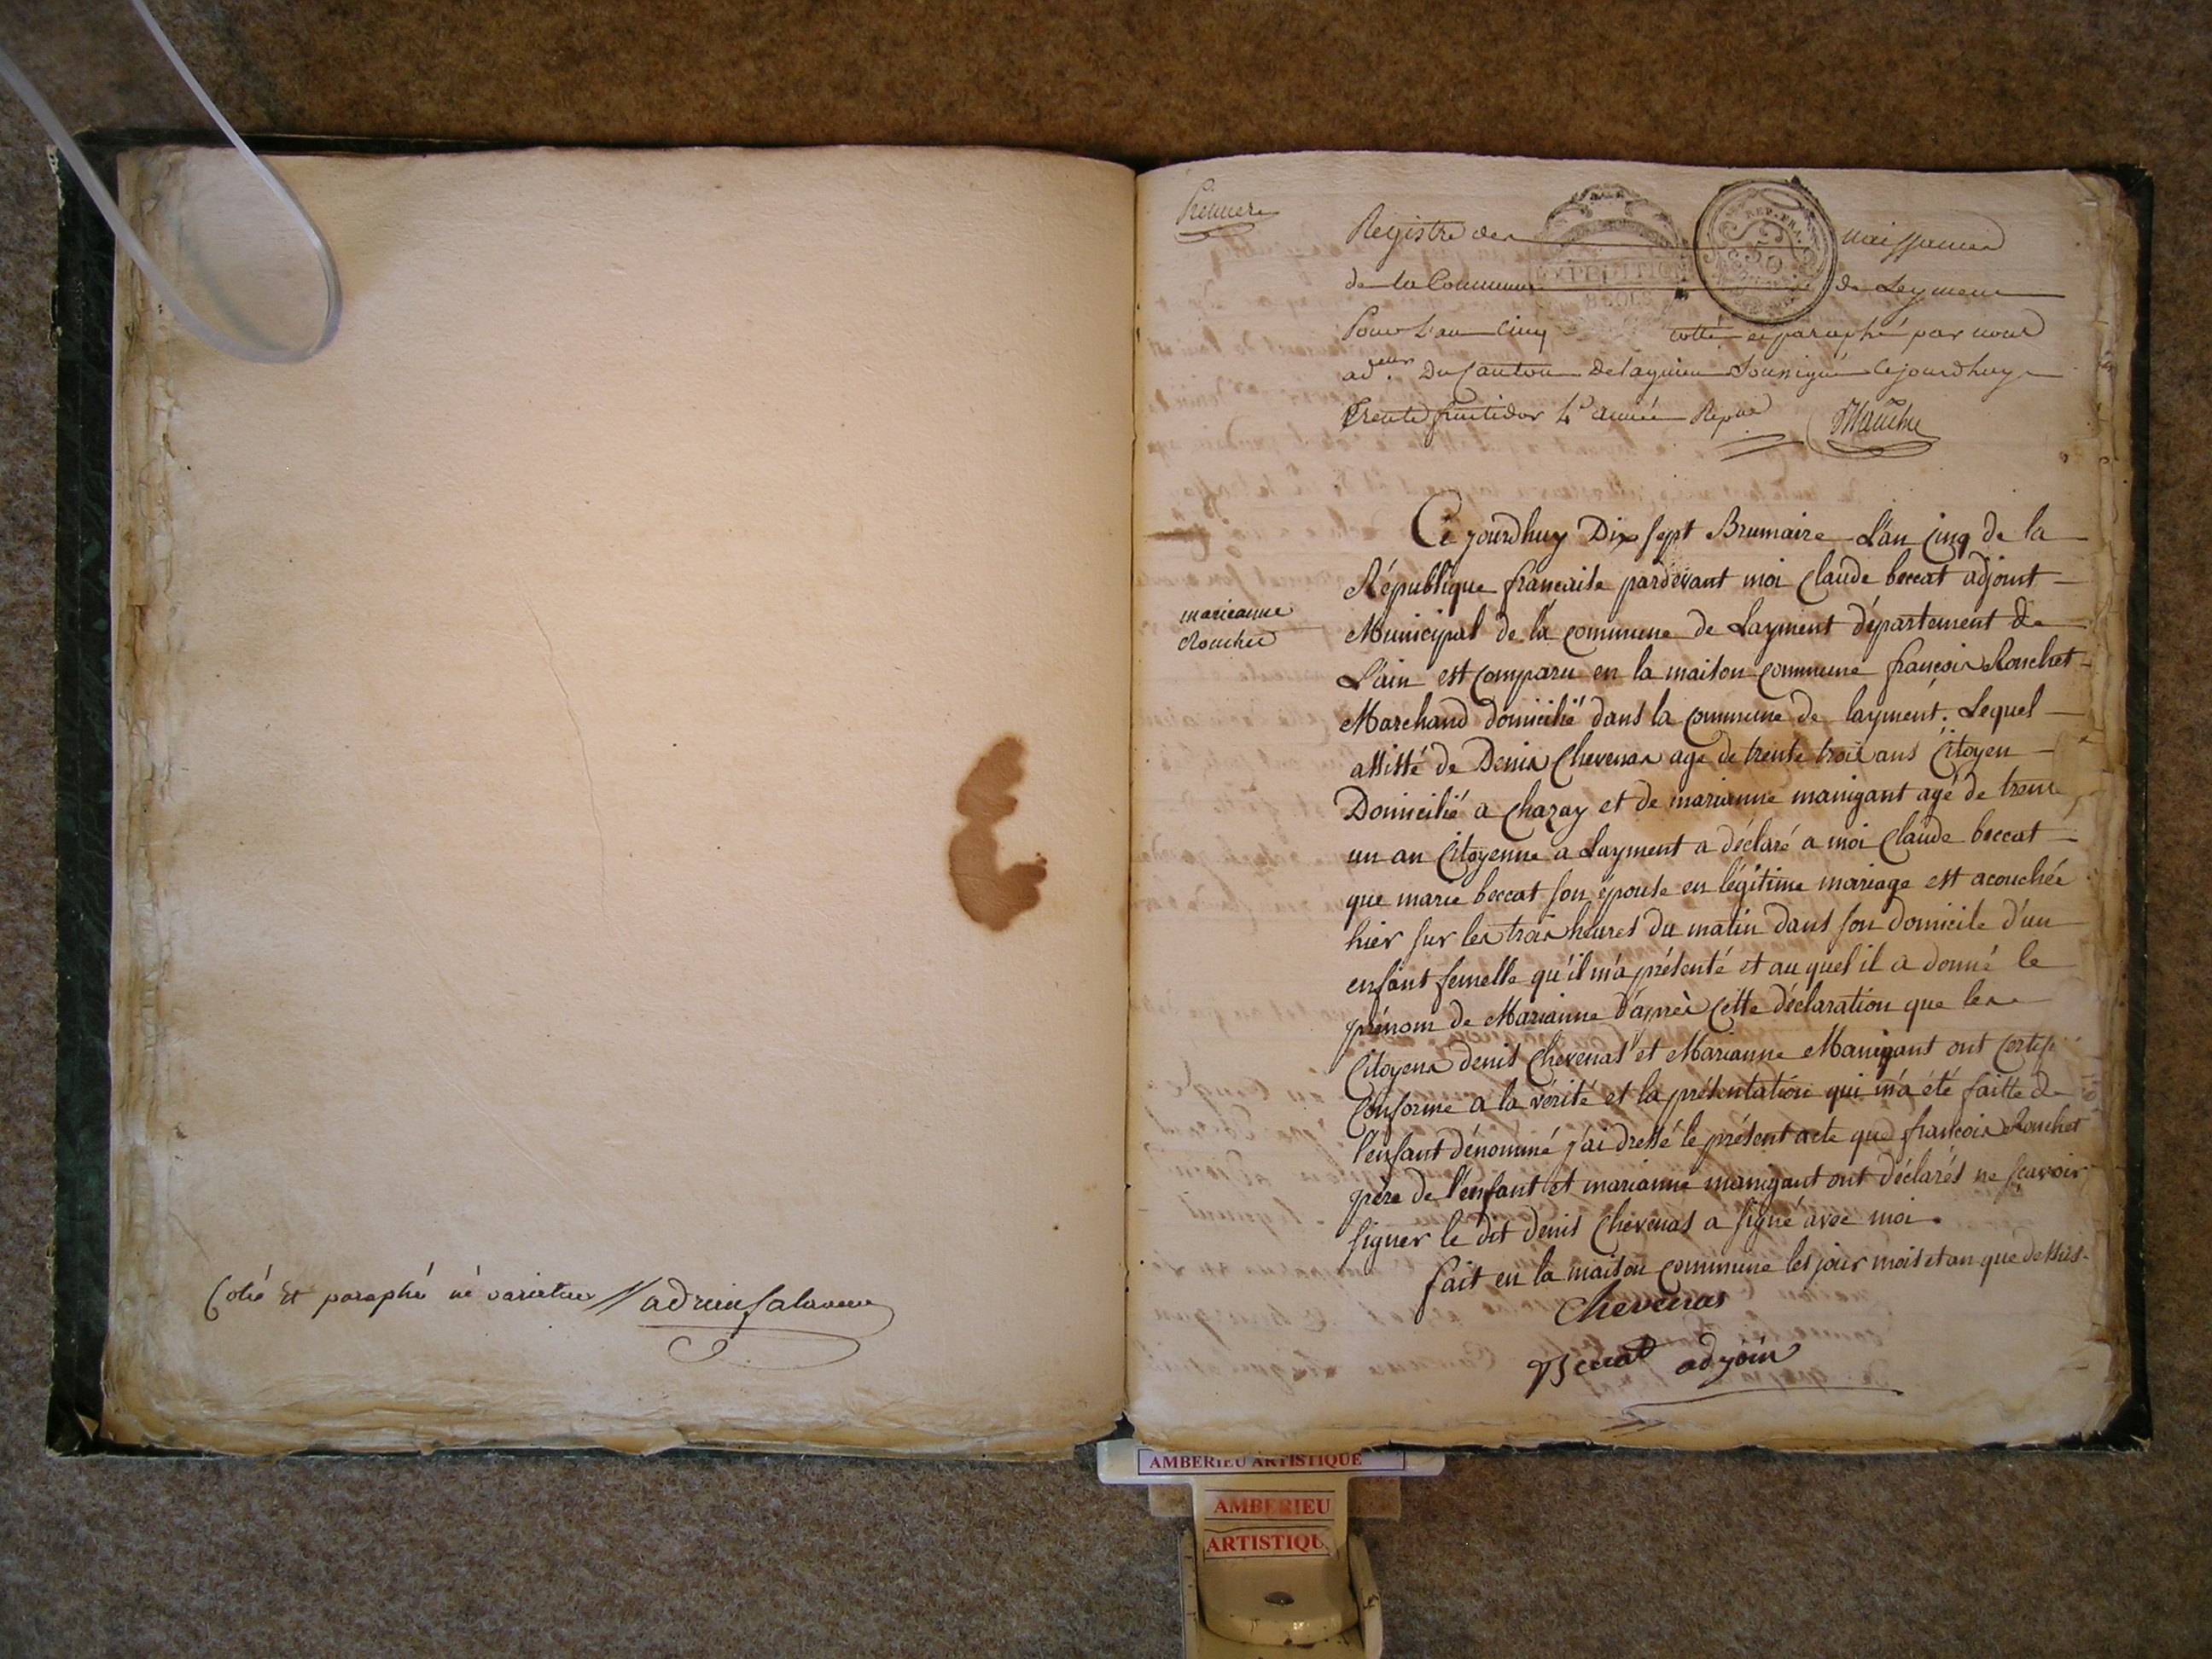 Coté et paraphé né varietur
Premier
Registre des naissances
de la Commune de Leyment
Pour l'an Cinq cotté et paraphé par nous
ad.eur Du Canton De lagnieu Soussigné Cejourdhuy
Trente fructidor 4e année Répue
REP. FRA.
EXPEDITION
8 SOLS
marieanne
Rouchet
Ce jourdhuy Dix sept Brumaire L'an Cinq de la
République francaise pardevant moi Claude beccat adjoint
Municipal de la commune de Layment département de
L'ain est Comparu en la maison commune françois Rouchet
Marchand domicilié dans la commune de layment. Lequel
assisté de Denis Chevenas age de trente trois ans Citoyen
Domicilié a Chazay et de marianne manigant agé de trente
un an Citoyenne a Layment a déclaré a moi Claude beccat
que marie beccat son épouse en légitime mariage est acouchée
hier sur les trois heures du matin dans son domicile d'un
enfant femelle qu'il m'a présenté et au quel il a donné le
prénom de Marianne D'après Cette déclaration que les
Citoyens denis Chevenas et Marianne Manigant ont Certif
Conforme a la vérité et la présentation qui m'a été faitte de
l'enfant dénommé j'ai dressé le présent acte que francois Rouchet
père de l'enfant et marianne manigant ont déclarés ne scavoir
signer le dit denis Chevenas a signé avec moi.
fait en la maison commune les jour mois et an que dessus.
Chevenas
Beccat adjoin
AMBERIEU ARTISTIQUE
AMBERIEU
ARTISTIQU